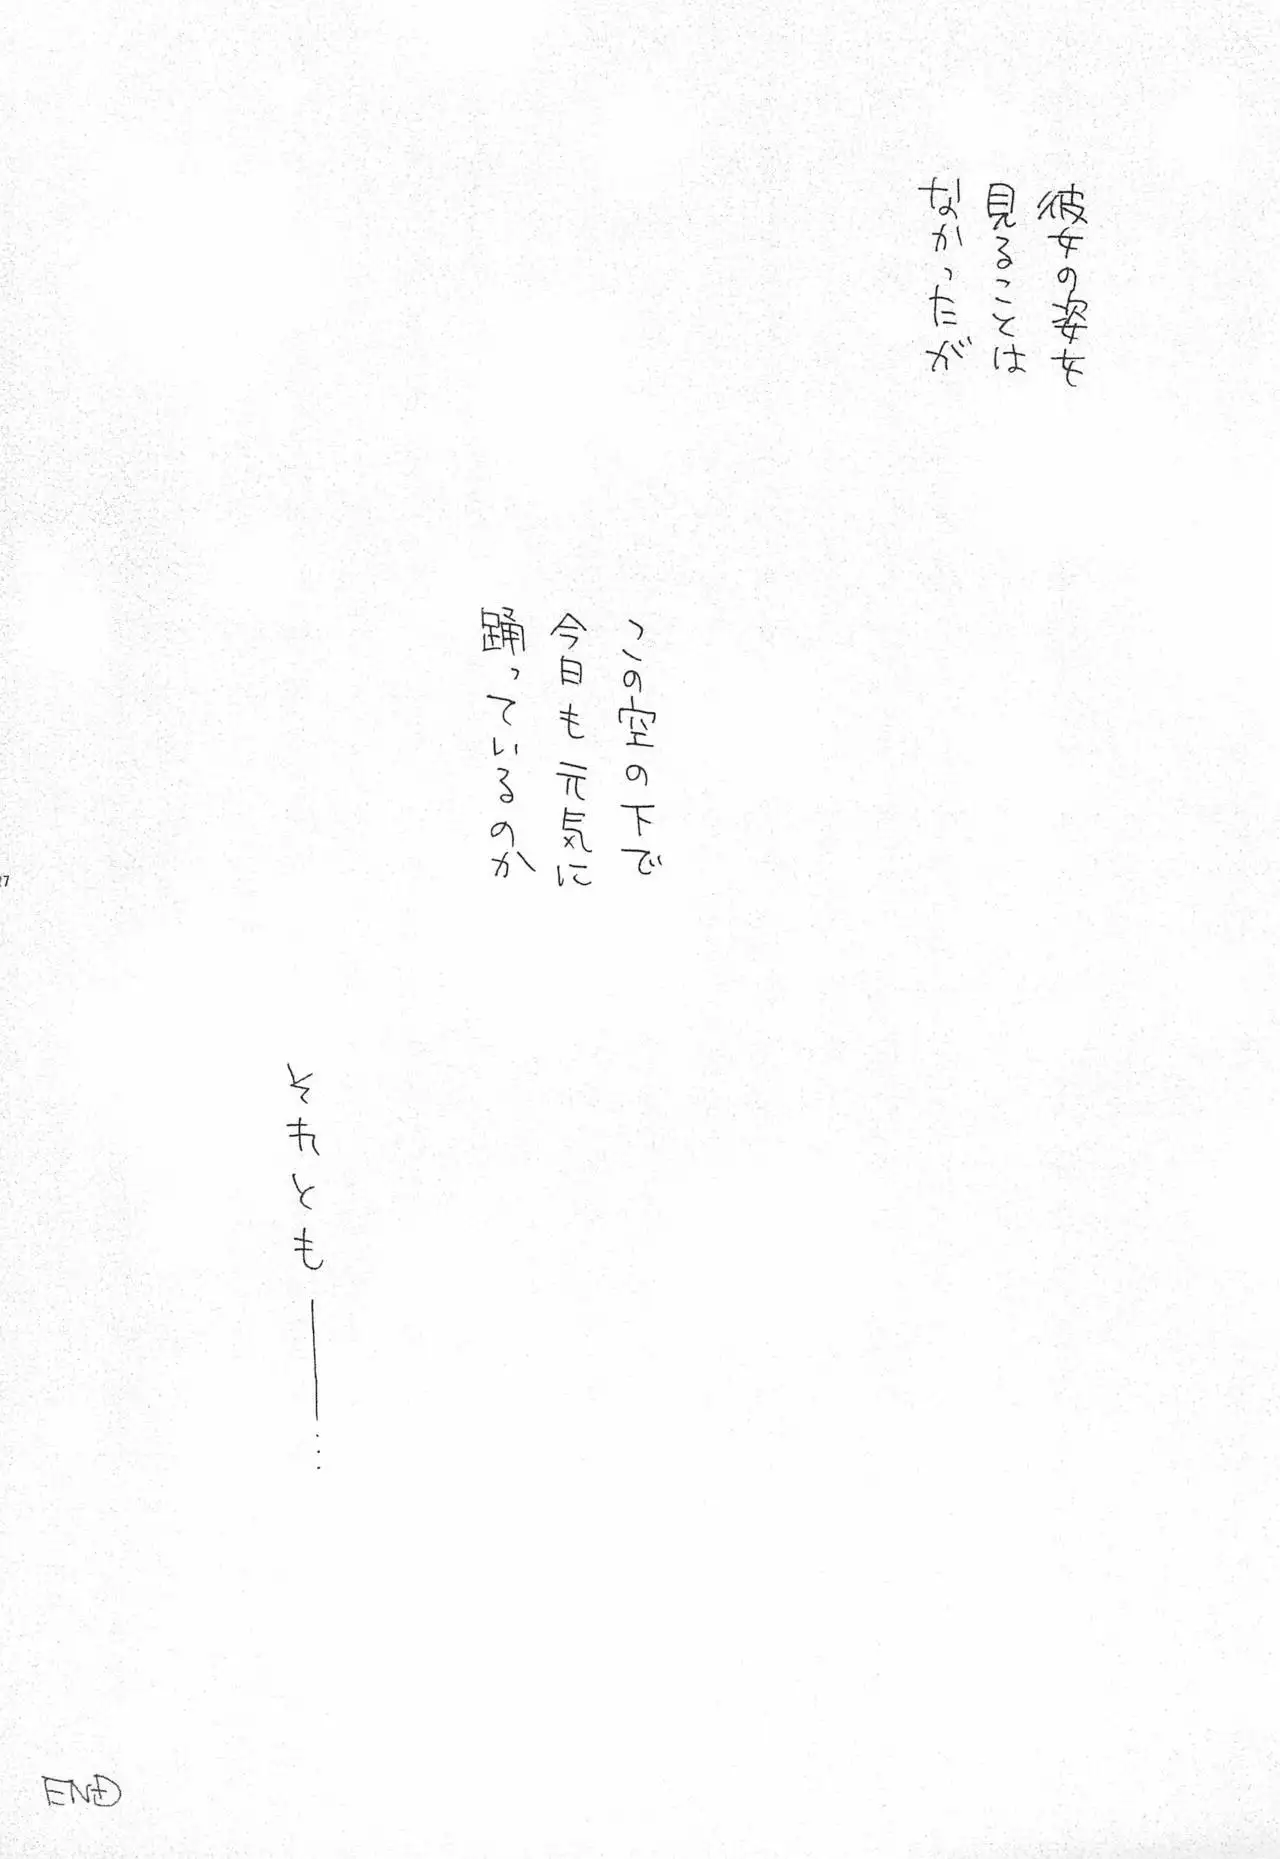 彼女の姿を
見ることは
なかったが
この空の下で
今日も元気に
踊っているのか
それとも――…
27
END